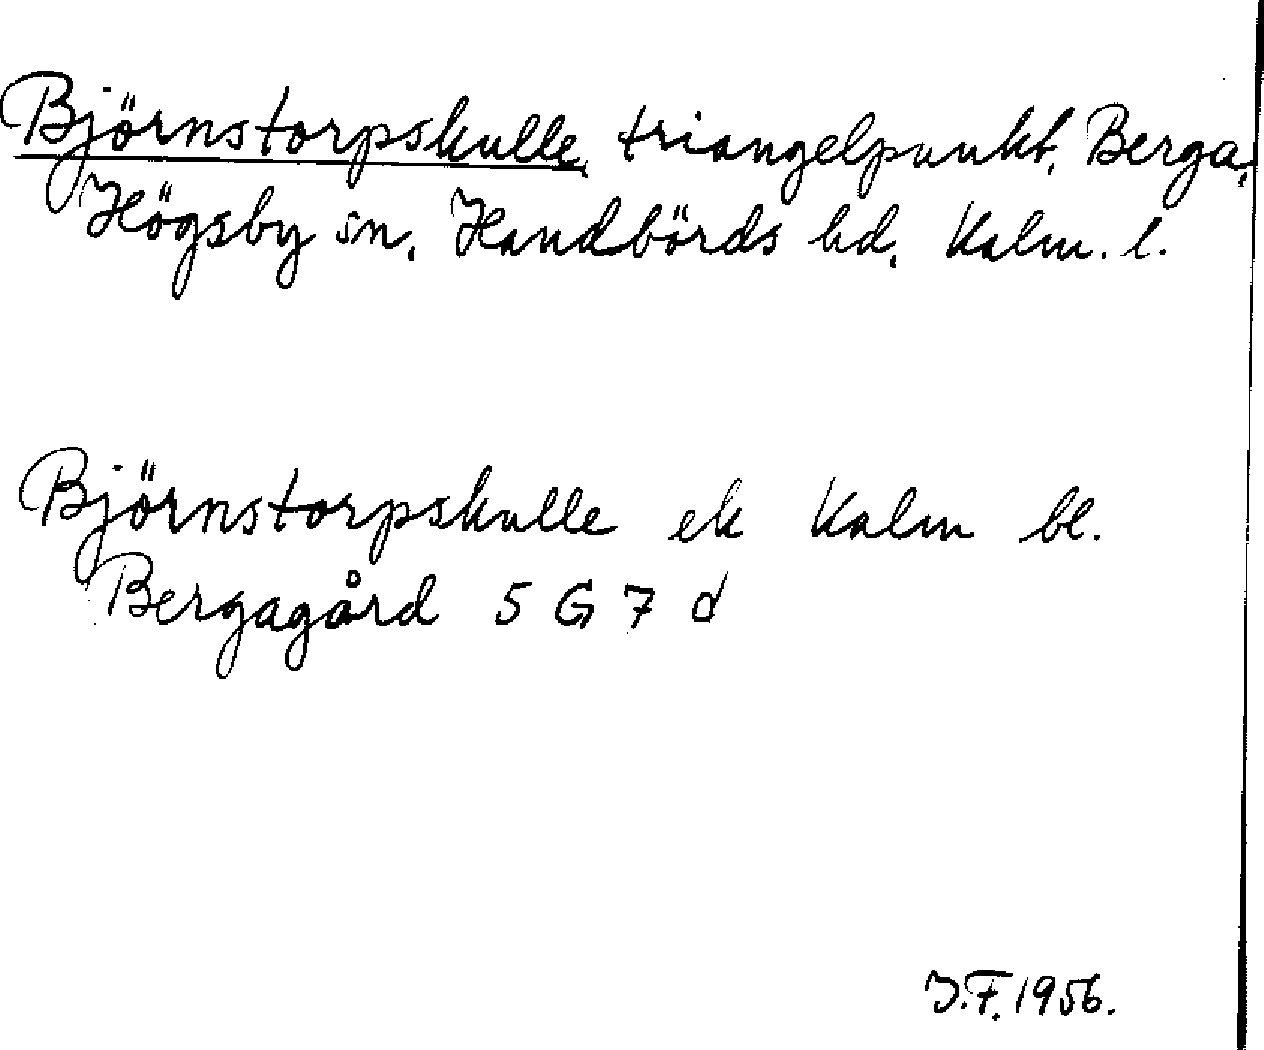 Björnstorpskulle, triangelpunkt, Berga,
Högsby sn, Handbörds hd, Kalm. l.
Björnstorpskulle ek Kalm bl.
Bergagård 5 G 7 d
J.F. 1956.